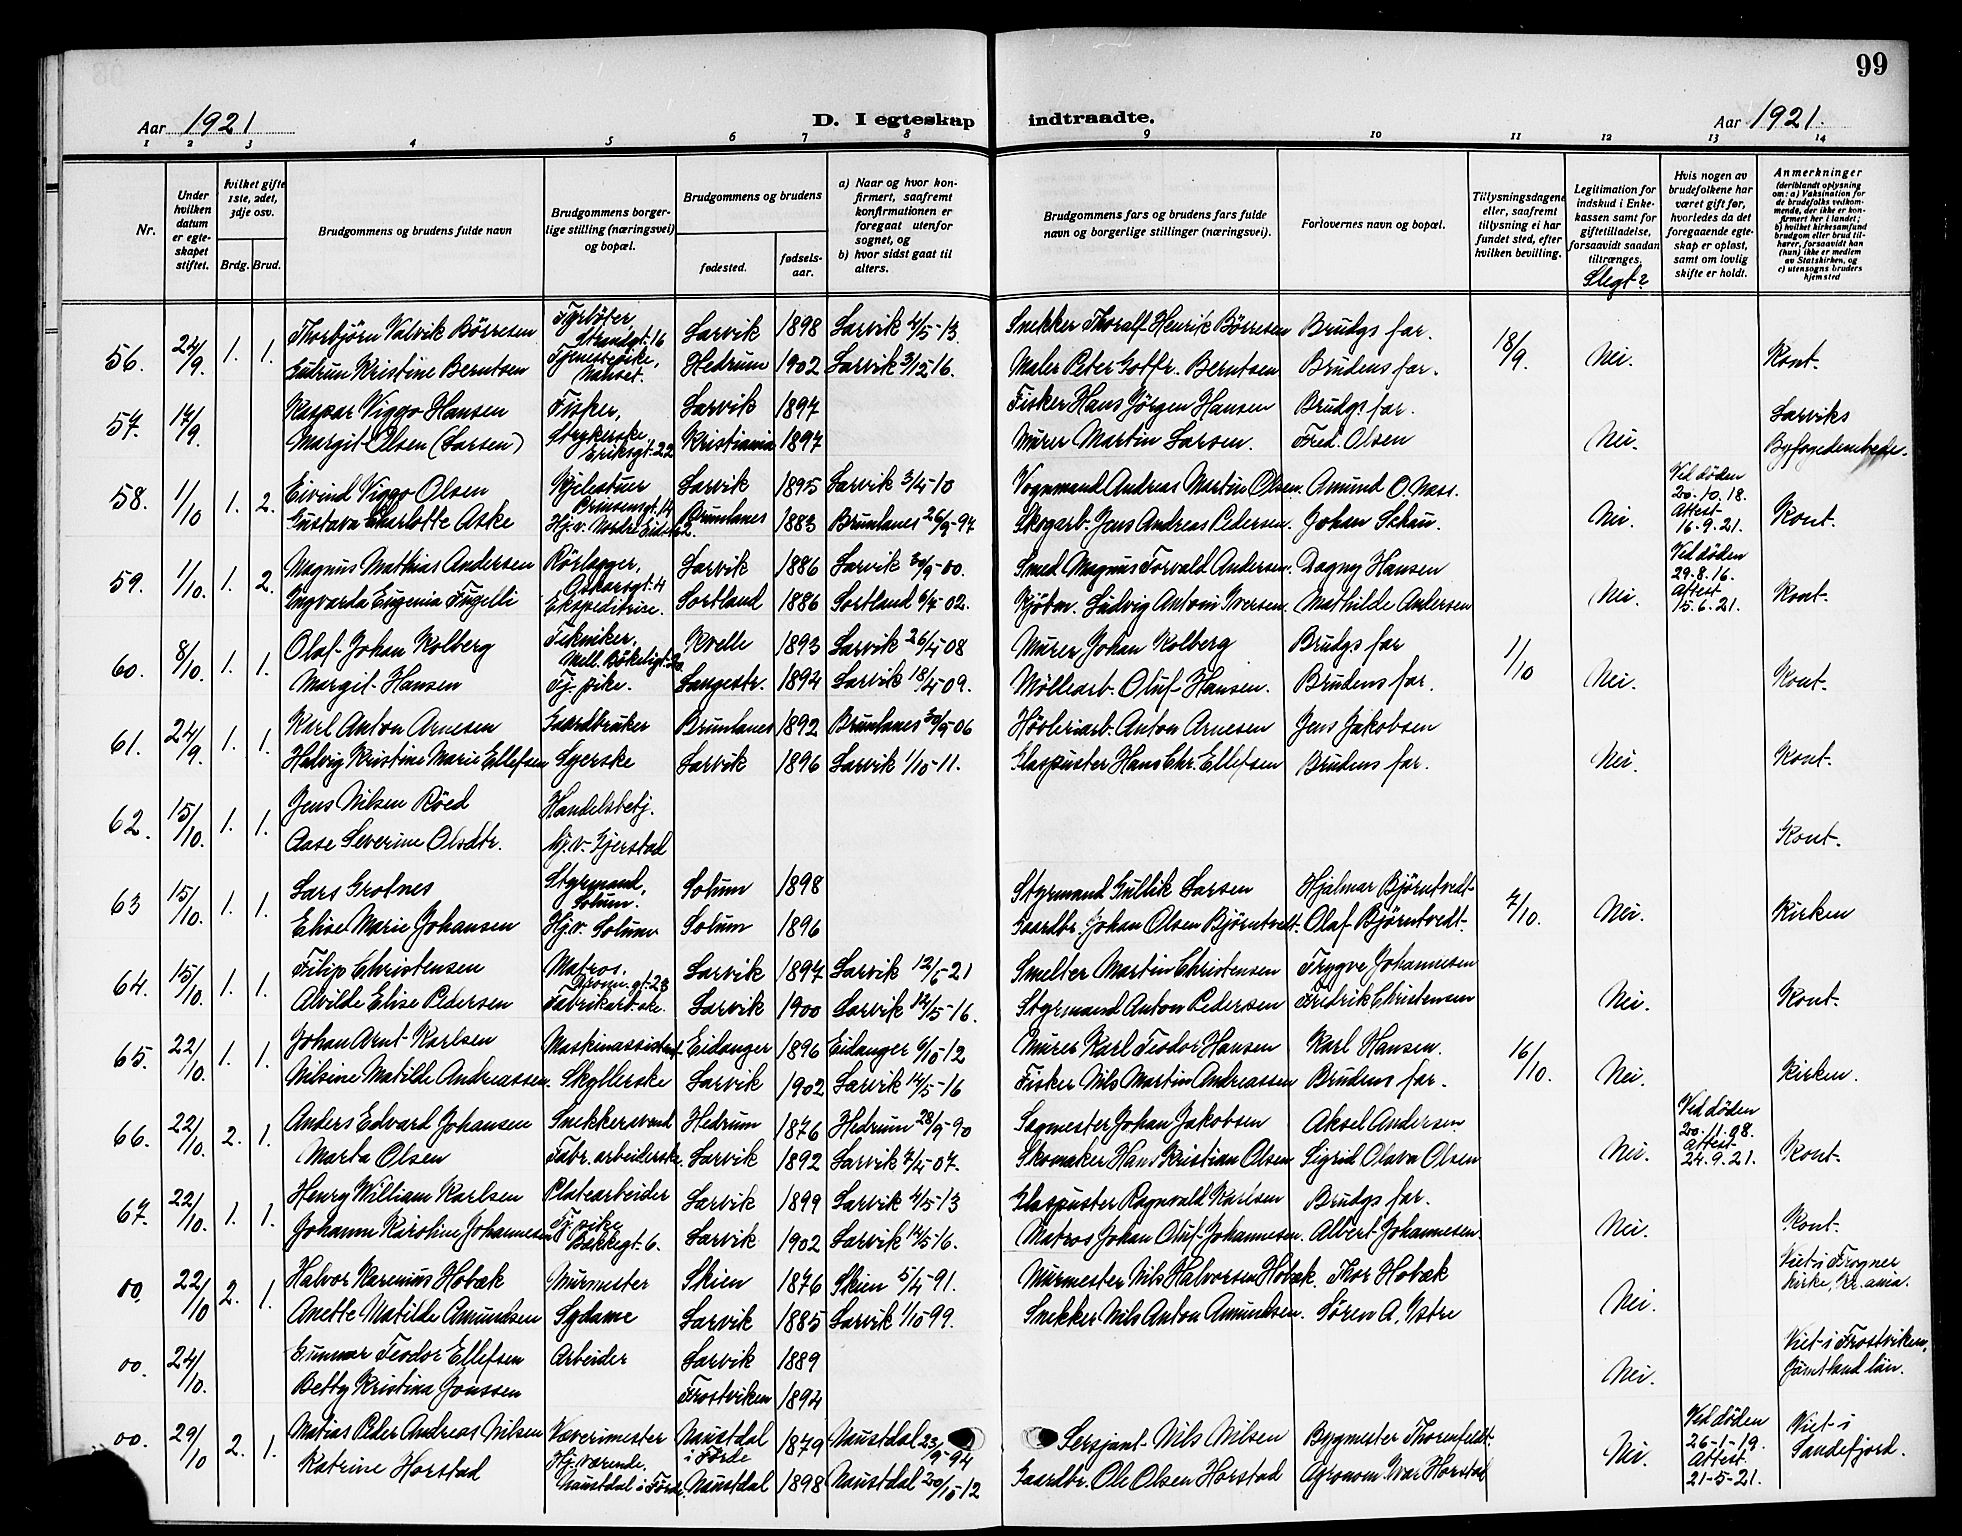 99
Aar 1921 D. I egteskap indtraadte. Aar 1921.
1 2 3 4 5 6 7 8 9 10 11 12 13 14
Nr.
Under hvilken datum er egteskapet stiftet.
hvilket gifte 1ste, 2det, 3dje osv.
Brdg. Brud.
Brudgommens og brudens fulde navn
Brudgommens borgerlige stilling (næringsvei) og bopæl.
Brudgommens og brudens
fødested.
fødselsaar.
a) Naar og hvor konfirmert, saafremt konfirmationen er foregaat utenfor sognet, og
b) hvor sidst gaat til alters.
Brudgommens fars og brudens fars fulde navn og borgerlige stillinger (næringsvei).
Forlovernes navn og bopæl.
Tillysningsdagene eller, saafremt tillysning ei har fundet sted, efter hvilken bevilling.
Legitimation for indskud i Enkekassen samt for giftetilladelse, forsaavidt saadan tiltrænges.
Slegt?
Hvis nogen av brudefolkene har været gift før, hvorledes da det foregaaende egteskap er opløst, samt om lovlig skifte er holdt.
Anmerkninger (deriblandt oplysning om: a) Vaksination for de brudefolks vedkommende, der ikke er konfirmert her i landet; b) hvilket kirkesamfund brudgom eller brud tilhører, forsaavidt han (hun) ikke er medlem av Statskirken, og c) utensogns bruders hjemsted
56. 24/9. 1. 1. Thorbjörn Valvik Börresen Fyrböter Strandgt. 16 Larvik 1898 Larvik 4/5-13. Snekker Thoralf Henrik Börresen Brudgs far. 18/9. Nei. Kont.
Gudrun Kristine Berntsen Tjenestepike, Nanset. Hedrum 1902 Larvik 3/12 16. Maler Peter Gotfr. Berntsen Brudens far.
57. 17/9. Kaspar Viggo Hansen Fisker, Larvik 1897 Fisker Hans Jörgen Hansen Brudgs far. Nei. Larviks Byfogedembede.
Margit Olsen (Larsen) Strykerske Eriksgt. 22 Kristiania 1897 Murer Martin Larsen. Fred. Olsen
58. 1/10 1. 2. Eivind Viggo Olsen Prinsensgt. 14 Larvik 1895 Larvik 3/4-10 Vognmand Andreas Martin Olsen. Amund O. Næss. Nei. Ved döden 20.10.18. Attest 16.9.21. Kont.
Gustava Charlotte Aske Hjv. Brunlanes 1883 Brunlanes 26/9-97 Skogarb. Jens Andreas Pedersen. Johan Schau.
59. 1/10. 1. 2. Magnus Mathias Andersen Rörlegger, Oskarsgt. 4 Larvik 1886 Larvik 30/9-00. Smed Magnus Torvald Andersen. Dagny Hansen Nei. Ved döden 29.8.16. Attest 15.6.21. Kont.
Ingvarda Eugenia Fugelli Ekspeditrise. Sortland 1886 Sortland 6/7-02. Kjöbm. Ludvig Antoni Iversen. Mathilde Andersen
60. 8/10. 1. 1. Olaf Johan Kolberg Tekniker, Mell. Bökeligt. 20 Kvelle 1893 Larvik 26/4-08 Murer Johan Kolberg Brudgs far 1/10 Nei. Kont.
Margit Hansen Tj. pike. Langestr. 1894 Larvik 18/4-09. Möllearb. Oluf Hansen. Brudens far.
61. 24/9. 1. 1. Karl Anton Arnesen Gaardbruker Brunlanes 1892 Brunlanes 30/9-06 Hövleriarb. Anton Arnesen Jens Jakobsen Nei. Kont.
Hedvig Kristine Marie Ellefsen Syerske Larvik 1896 Larvik 1/10-11. Glaspuster Hans Chr. Ellefsen Brudens far.
62. 15/10. 1. 1. Jens Nilsen Röed Handelsbetj. Kont.
Aase Severine Olsdtr. hj.v. Gjerstad
63 15/10. 1. 1. Lars Grotnes Styrmand, Solum. Solum 1898 Styrmand Gullik Larsen Hjalmar Björntvedt 7/10. Nei. Kirken
Elise Marie Johansen Hjv. Solum Solum 1896 Gaardbr. Johan Olsen Björntvedt. Olaf Björntvedt.
64. 15/10. 1. 1. Filip Christensen Matros. Larvik 1897 Larvik 12/6-21 Smelter Martin Christensen Trygve Johannesen Nei. Kont.
Alvilde Elise Pedersen Fabrikarb.ske. Larvik 1900 Larvik 14/5-16. Styrmand Anton Pedersen Fredrik Christensen
65. 22/10. 1. 1. Johan Arnt Karlsen Maskinassistent Eidanger 1896 Eidanger 6/10-12 Murer Karl Teodor Hansen Karl Hansen. 16/10. Nei. Kirken.
Nilsine Matilde Andreassen. Skyllerske Larvik 1902 Larvik 14/5-16 Fisker Nils Martin Andreassen Brudens far.
66. 22/10. 2. 1. Anders Edvard Johansen Snekkersvend Hedrum 1876 Hedrum 28/9-90 Sagmester Johan Jakobsen Aksel Andersen Nei. Ved döden 20.11.08. Attest 24.9.21. Kont.
Marta Olsen Fabr. arbeiderske. Larvik 1892 Larvik 7/4-07. Skomaker Hans Kristian Olsen Sigrid Olava Olsen
67. 22/10. 1. 1. Henry William Karlsen Platearbeider Larvik 1899 Larvik 4/5-13 Glaspuster Ragnvald Karlsen Brudgs far. Nei. Kont.
Johanne Karoline Johannesen Tj. pike Bakkegt. 6. Larvik 1902 Larvik 14/5-16. Matros Johan Oluf Johannesen. Albert Johannesen.
00. 22/10 2. 1. Halvor Karenius Hobæk Murmester Skien 1876 Skien 5/4-91. Murmester Nils Halvorsen Hobæk. Thor Hobæk Nei. Viet i Frogner kirke, Kr.ania.
Anette Matilde Amundsen Sydame Larvik 1885 Larvik 1/10-99. Snekker Nils Anton Amundsen. Sören A. Istre
00. 24/10. Gunnar Teodor Ellefsen Arbeider Larvik 1889 Nei. Viet i Frostviken, Jämtland län.
Betty Kristina Jonssen Frostviken 1894
00. 29/10 2. 1. Matias Peder Andreas Nilsen Væverimester Naustdal i Förde 1879 Naustdal 23/9-94 Sersjant Nils Nilsen Bygmester Thornfeldt. Nei. Ved döden 26-1-19. Attest 21-5-21. Viet i Sandefjord.
Katrine Horstad Hj. værende. Naustdal i Förde. Naustdal 1898 Naustdal 20/10-12 Gaardbr. Ole Olsen Horstad Agronom Ivar Horstad